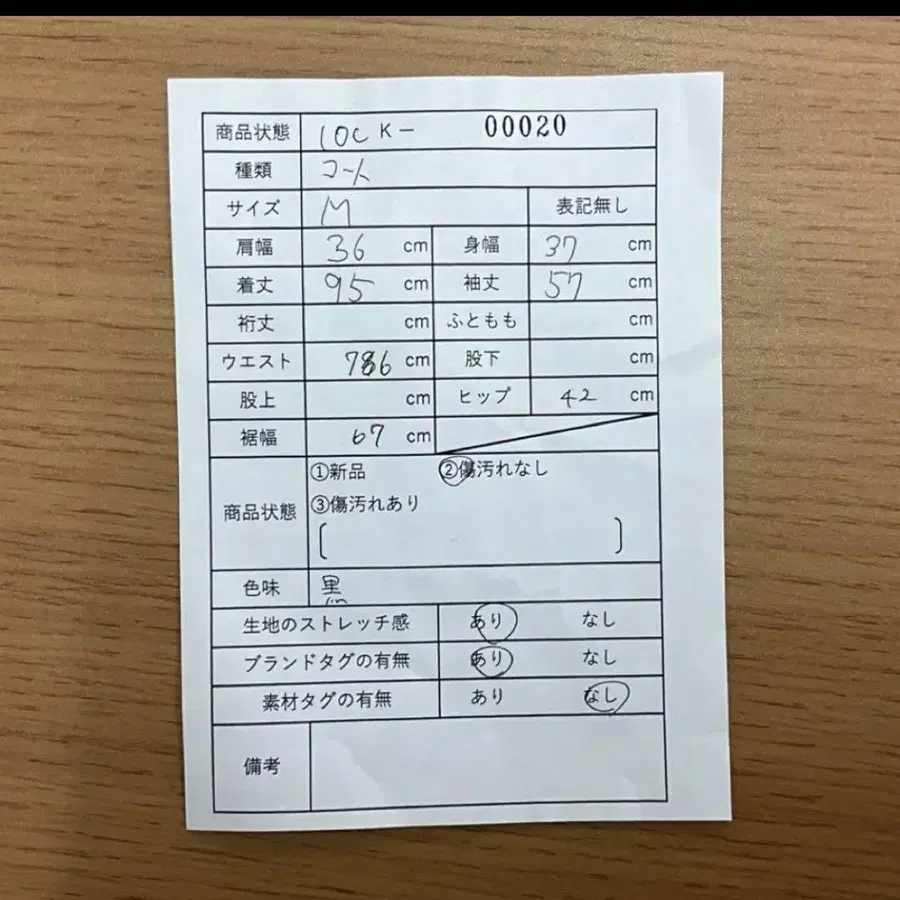 商品状態 10C K- 00020
種類 コート
サイズ M 表記無し
肩幅 36 cm 身幅 37 cm
着丈 95 cm 袖丈 57 cm
裄丈 cm ふともも cm
ウエスト cm 股下 cm
股上 cm ヒップ 42 cm
裾幅 67 cm
①新品 ②傷汚れなし
商品状態 ③傷汚れあり
[ ]
色味 黒
生地のストレッチ感 あり なし
ブランドタグの有無 あり なし
素材タグの有無 あり なし
備考